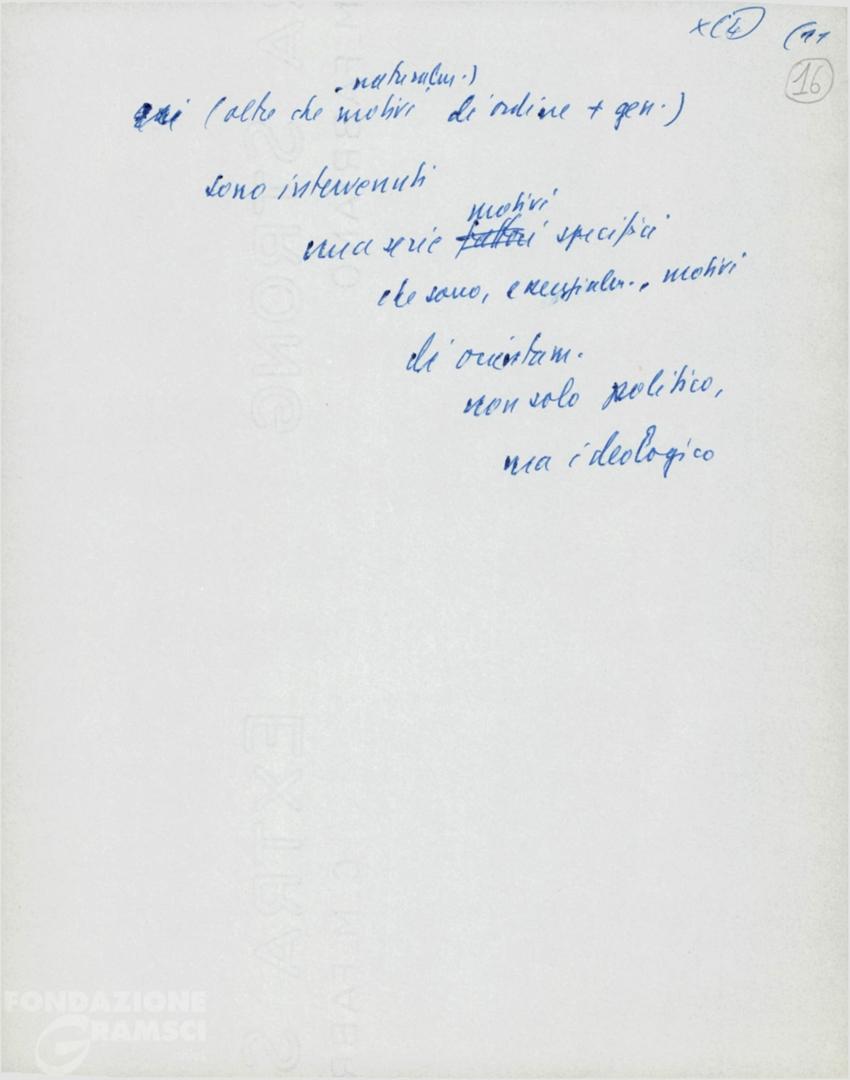 x(4) (11
16
, naturalm.)
qui (oltre che motivi di ordine + gen.)
sono intervenuti
una serie fattori motivi specifici
che sono, essenzialm., motivi
di orientam.
non solo politico,
ma ideologico
FONDAZIONE
GRAMSCI